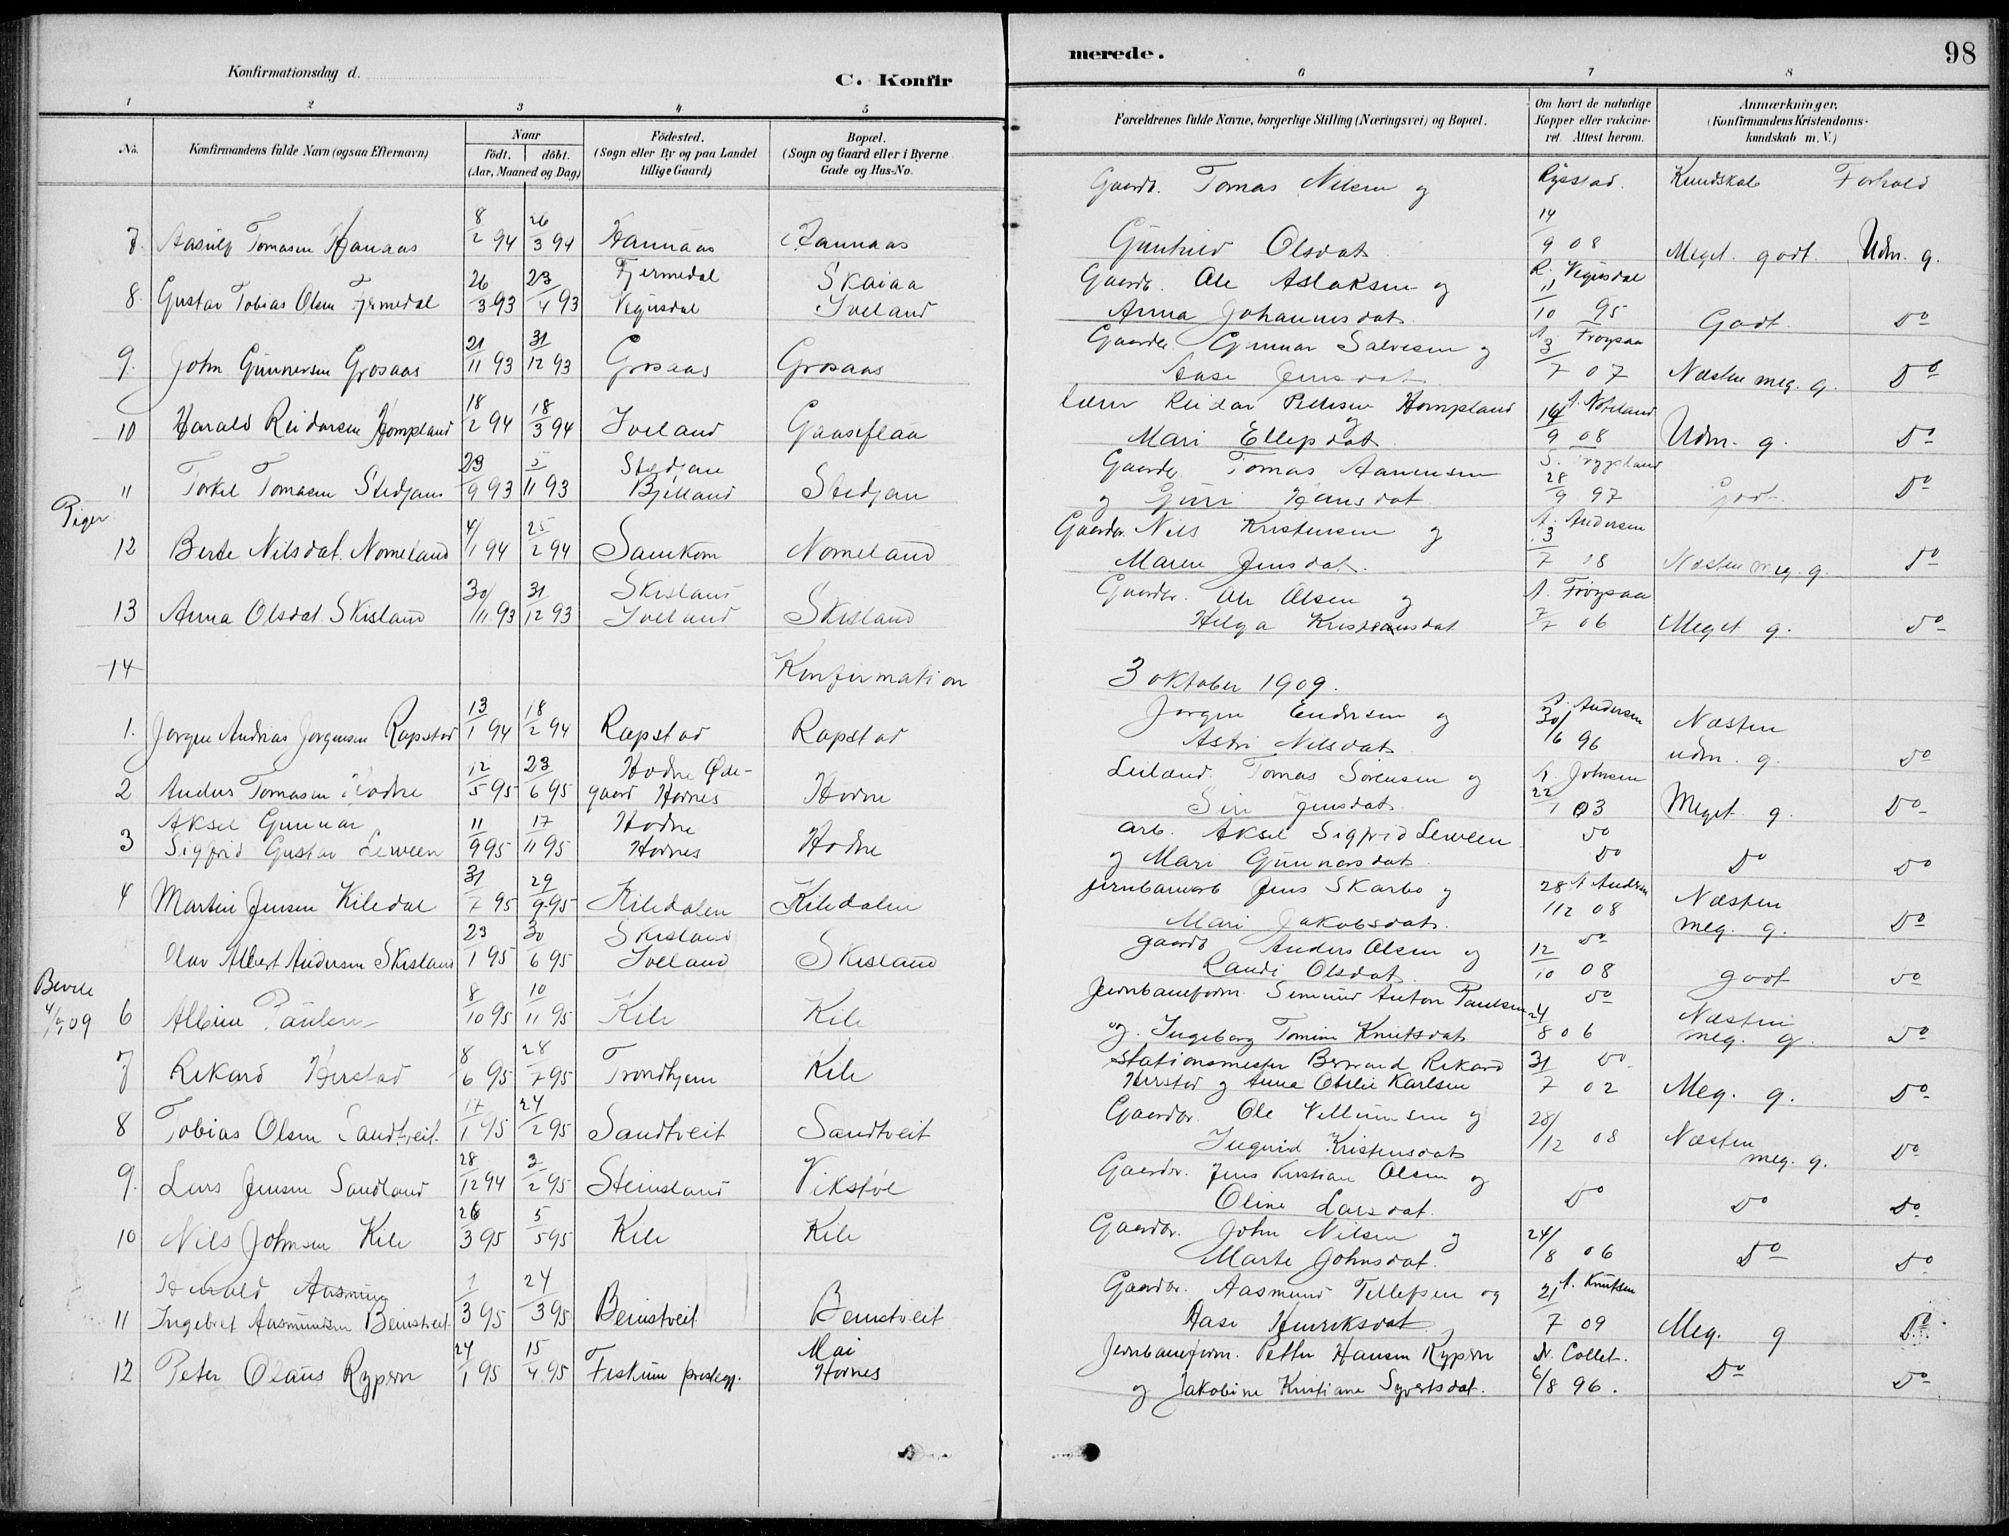 Konfirmationsdag d.
C. Konfir
merede.
98
1 2 3 4 5 6 7 8
No.
Konfirmandens fulde Navn (ogsaa Efternavn)
Naar
födt. döbt.
(Aar, Maaned og Dag)
Födested.
(Sogn eller By og paa Landet
tillige Gaard)
Bopæl.
(Sogn og Gaard eller i Byerne
Gade og Hus-No.
Forældrenes fulde Navne, borgerlige Stilling (Næringsvei) og Bopæl.
Om havt de naturlige
Kopper eller vakcine-
ret. Attest herom.
Anmærkninger,
(Konfirmandens Kristendoms-
kundskab m. V.)
Gaardb. Tomas Nilsen og Rysstad. Kundskab Forhold
7. Aasulf Tomasen Hannaas 8/2 94 26/3 94 Hannaas Hannaas Gunhild Olsdat. 14/9 08 Meget godt Udm. g.
8. Gustav Tobias Olsen Fjermedal 26/3 93 23/4 93 Fjermedal Vegusdal Skaiaa Iveland Gaardb. Ole Aslaksen og
Anna Johannesdat. R. Vegusdal 11/10 95 Godt do
9. John Gunnersen Grosaas 21/11 93 31/12 93 Grosaas Grosaas Gaardbr. Gunnar Salvesen og
Aase Jensdat. A. Frøysaa 3/7 07 Næsten meg. g. do
10 Harald Reidarsen Hompland 18/2 94 18/3 94 Iveland Gaaseflaa Lærer Reidar Pettersen Hompland
og Mari Ellefsdat. A. Nomeland 14/9 08 Udm. g. do
11 Torkel Tomasen Stedjan 23/9 93 5/11 93 Stedjan Bjelland Stedjan Gaardb. Tomas Aanensen
og Guri Hansdat. S. Trygsland 28/9 97 Godt do
Piger
12 Berte Nilsdat. Nomeland 4/1 94 25/2 94 Samkom Nomeland Gaardbr. Nils Kristensen og
Maren Jensdat. A. Andersen 3/7 08 Næsten meg. g. do
13 Anna Olsdat. Skisland 30/11 93 31/12 93 Skisland Iveland Skisland Gaardbr. Ole Olsen og
Helga Kristensdat A. Frøysaa 7/7 06 Meget g. do
14 Konfirmation 3 oktober 1909.
1. Jørgen Andreas Jørgensen Rapstad 13/1 94 18/2 94 Rapstad Rapstad Jørgen Endresen og
Astri Nilsdat. A. Andersen 30/6 96 Næsten udm. g. do
2 Anders Tomasen Hodne 12/5 95 23/6 95 Hodne Øde-
gaard Hornes Hodne Leiland. Tomas Sørensen og
Siri Jensdat. A. Johnsen 22/1 03 Meget g. do
3 Aksel Gunnar
Sigfrid Gustav Leween 11/9 95 17/11 95 Hodne Hornes Hodne arb. Aksel Sigfrid Leween
og Mari Gunnarsdat. do do do do
4 Martin Jensen Kiledal 31/7 95 29/9 95 Kiledalen Kiledalen Jernbanearb Jens Skarbo og
Mari Jakobsdat. A Andersen 28/12 08 Næsten meg. g. do
Olav Albert Andersen Skisland 23/1 95 30/6 95 Skisland Iveland Skisland gaardb Anders Olsen og
Randi Olsdat. do 12/10 08 godt do
Bevill
4/9 09
6 Albin Paulsen 8/10 95 10/11 95 Kile Kile Jernbaneform. Semund Anton Paulsen
og Ingeborg Tomine Knutsdat. do 24/8 06 Næsten meg. g. do
7 Rikard Herstad 8/6 95 28/7 95 Trondhjem Kile Stationsmester Bernard Rikard
Herstad og Anna Otelie Karlsen do 31/7 02 Meg. g. do
8 Tobias Olsen Sandtveit 17/1 95 24/2 95 Sandtveit Sandtveit Gaardbr. Ole Vellumsen og
Ingerid Kristensdat. 28/12 08 Næsten meg. g. do
9. Lars Jensen Sandland 28/12 94 3/2 95 Steinsland Vikstøl Gaardbr. Jens Kristian Olsen og
Oline Larsdat. do do do
10 Nils Johnsen Kile 26/3 95 5/5 95 Kile Kile Gaardbr. John Nilsen og
Marte Johnsdat. 24/8 06 do do
Harald Aasmun
11 Ingebret Aasmundsen Beinstveit 1/3 95 24/3 95 Beinstveit Beinstveit Gaardbr. Aasmund Tellefsen og
Aase Henriksdat. A. Knutsen 21/7 09 Meg. g do
12 Peter Olaus Rypern 24/1 95 15/4 95 Fiskum prestegj. Moi Hornes Jernbaneform. Petter Hansen Rypern
og Jakobine Kristiane Syvertsdat. Dr. Collet. 6/8 96. do do